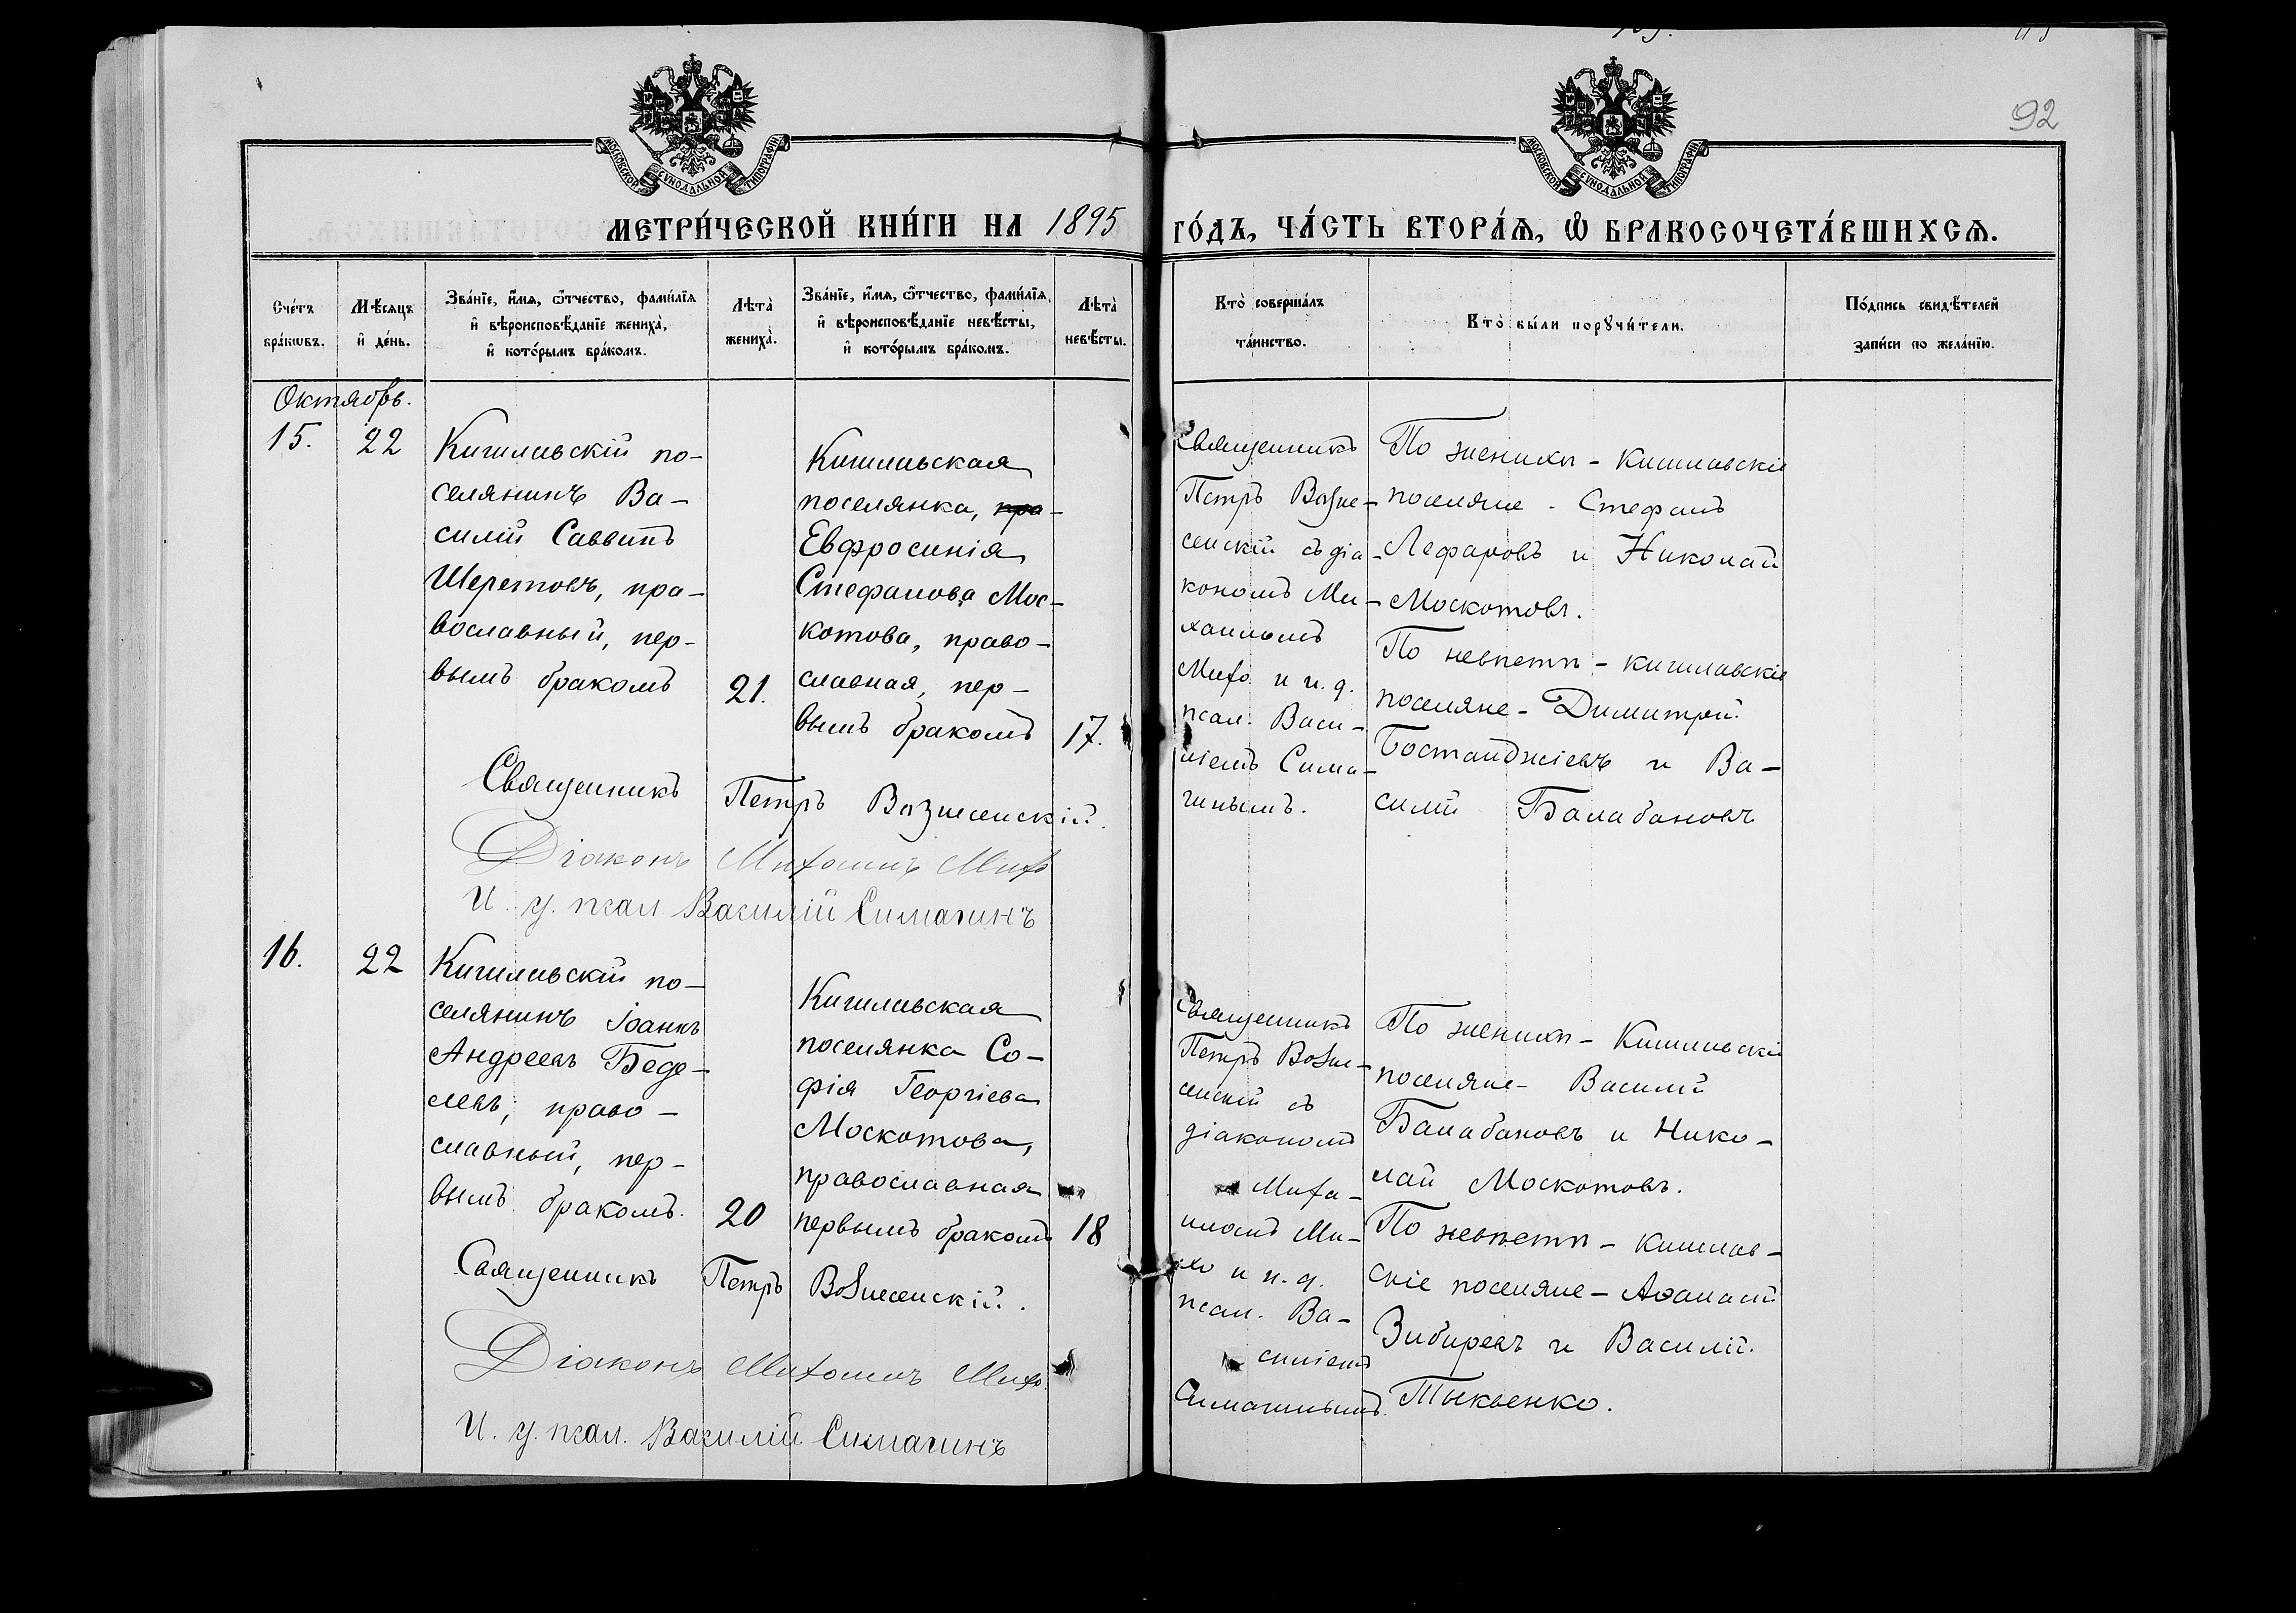 92
МОСКОВСКОЙ СѴНОДАЛЬНОЙ ТИПОГРАФІИ
МОСКОВСКОЙ СѴНОДАЛЬНОЙ ТИПОГРАФІИ
МЕТРИ́ЧЕСКОЙ КНИ́ГИ НА 1895 ГО́ДЪ, ЧА́СТЬ ВТОРА́Ѧ, Ѽ БРАКОСОЧЕТА́ВШИХСѦ.
Сче́тъ
бра́кѡвъ.
Мѣ́сѧцъ
и҆ де́нь.
Зва́нїе, и҆́мѧ, ѻ҆́тчество, фами́лїѧ
и҆ вѣроисповѣ́данїе жениха̀,
и҆ кото́рымъ бра́комъ.
Лѣта̀
жениха̀.
Зва́нїе, и҆́мѧ, ѻ҆́тчество, фами́лїѧ,
и҆ вѣроисповѣ́данїе невѣ́сты,
и҆ кото́рымъ бра́комъ.
Лѣта̀
невѣ́сты.
Кто̀ соверша́лъ
та́инство.
Кто̀ бы́ли порꙋчи́тели.
По́дпись свидѣ́телей
за́писи по жела́нїю.
Октябрь.
15.
22
Кишлавскій по-
селянинъ Ва-
силій Саввинъ
Шеретовъ, пра-
вославный, пер-
вымъ бракомъ
21.
Кишлавская
поселянка, пра-
Евфросинія
Стефанова Мос-
котова, право-
славная, пер-
вымъ бракомъ
17.
Священникъ
Петръ Возне-
сенскій съ діа-
кономъ Ми-
хаиломъ
Михо и и. д.
псал. Васи-
ліемъ Сима-
гинымъ.
По женихѣ - Кишлавскіе
поселяне - Стефанъ
Лефаровъ и Николай
Москотовъ.
По невѣстѣ - кишлавскіе
поселяне - Димитрій
Бостанджіевъ и Ва-
силій Балабановъ
Священникъ Петръ Вознесенскій.
Діаконъ Михаилъ Михо
И. д. псал. Василій Симагинъ
16.
22
Кишлавскій по-
селянинъ Іоаннъ
Андреевъ Беде-
левъ, право-
славный, пер-
вымъ бракомъ.
20
Кишлавская
поселянка Со-
фія Георгіева
Москотова,
православная
первымъ бракомъ
18
Священникъ
Петръ Возне-
сенскій съ
діакономъ
Миха-
иломъ Ми-
хо и и. д.
псал. Ва-
силіемъ
Симагинымъ.
По женихѣ - Кишлавскіе
поселяне - Василій
Балабановъ и Нико-
лай Москотовъ.
По невѣстѣ - кишлав-
скіе поселяне - Аѳанасій
Зибиревъ и Василій
Тыквенко.
Священникъ Петръ Вознесенскій.
Діаконъ Михаилъ Михо.
И. д. псал. Василій Симагинъ